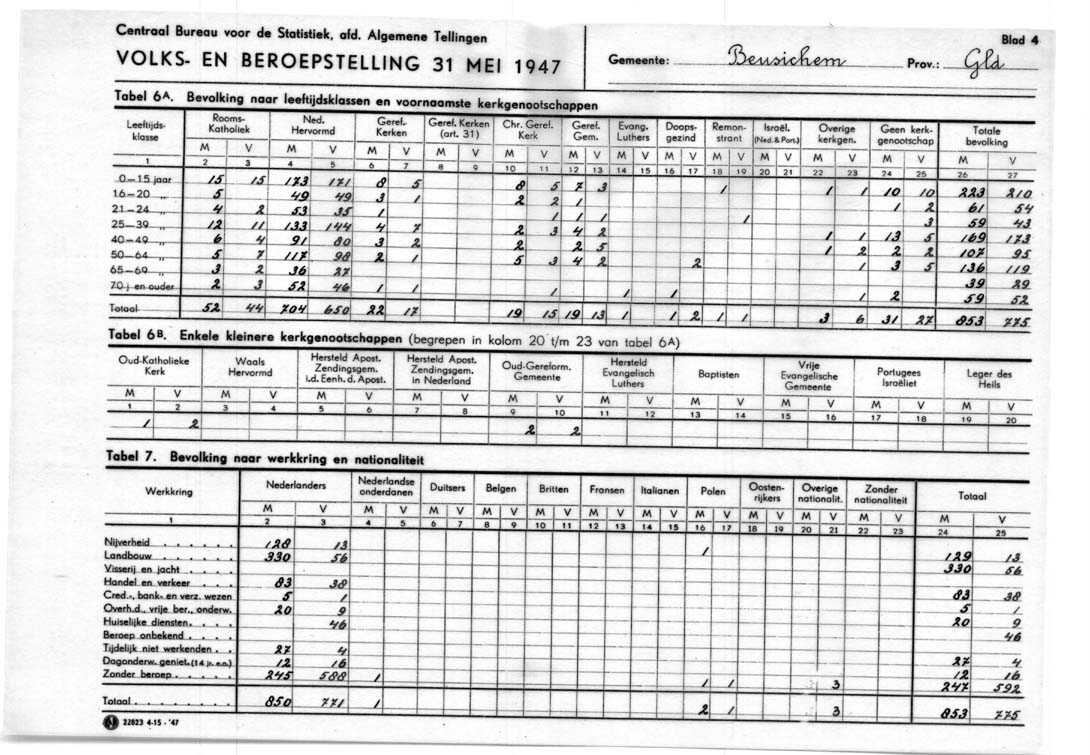 Centraal Bureau voor de Statistiek, afd. Algemene Tellingen
Blad 4
VOLKS- EN BEROEPSTELLING 31 MEI 1947
Gemeente: Beusichem Prov.: Gld
Tabel 6A. Bevolking naar leeftijdsklassen en voornaamste kerkgenootschappen
Leeftijds-klasse Rooms-Katholiek Ned. Hervormd Geref. Kerken Geref. Kerken (art. 31) Chr. Geref. Kerk Geref. Gem. Evang. Luthers Doops-gezind Remon-strant Israël. (Ned. & Port.) Overige kerkgen. Geen kerk-genootschap Totale bevolking
M V M V M V M V M V M V M V M V M V M V M V M V M V
1 2 3 4 5 6 7 8 9 10 11 12 13 14 15 16 17 18 19 20 21 22 23 24 25 26 27
0—15 jaar 15 15 173 171 8 5 8 5 7 3 1 1 1 10 10 223 210
16—20 „ 5 49 49 3 1 2 2 1 1 2 61 54
21—24 „ 4 2 53 35 1 1 1 1 1 3 59 43
25—39 „ 12 11 133 144 4 7 2 3 4 2 1 1 13 5 169 173
40—49 „ 6 4 91 80 3 2 2 2 5 1 2 2 2 107 95
50—64 „ 5 7 117 98 2 1 5 3 4 2 2 1 3 5 136 119
65—69 „ 3 2 36 27 39 29
70 j en ouder 2 3 52 46 1 1 1 1 1 2 59 52
Totaal 52 44 704 650 22 17 19 15 19 13 1 1 2 1 1 3 6 31 27 853 775
Tabel 6B. Enkele kleinere kerkgenootschappen (begrepen in kolom 20 t/m 23 van tabel 6A)
Oud-Katholieke Kerk Waals Hervormd Hersteld Apost. Zendingsgem. i.d. Eenh. d. Apost. Hersteld Apost. Zendingsgem. in Nederland Oud-Gereform. Gemeente Hersteld Evangelisch Luthers Baptisten Vrije Evangelische Gemeente Portugees Israëliet Leger des Heils
M V M V M V M V M V M V M V M V M V M V
1 2 3 4 5 6 7 8 9 10 11 12 13 14 15 16 17 18 19 20
1 2 2 2
Tabel 7. Bevolking naar werkkring en nationaliteit
Werkkring Nederlanders Nederlandse onderdanen Duitsers Belgen Britten Fransen Italianen Polen Oosten-rijkers Overige nationalit. Zonder nationaliteit Totaal
M V M V M V M V M V M V M V M V M V M V M V M V
1 2 3 4 5 6 7 8 9 10 11 12 13 14 15 16 17 18 19 20 21 22 23 24 25
Nijverheid 128 13 1 129 13
Landbouw 330 56 330 56
Visserij en jacht
Handel en verkeer 83 38 83 38
Cred.-, bank- en verz. wezen 5 1 5 1
Overh.d., vrije ber., onderw. 20 9 20 9
Huiselijke diensten 46 46
Beroep onbekend
Tijdelijk niet werkenden 27 4 27 4
Dagonderw. geniet. (14 jr. e.o.) 12 16 12 16
Zonder beroep 245 588 1 1 1 3 247 592
Totaal 850 771 1 2 1 3 853 775
22823 4-15 - '47